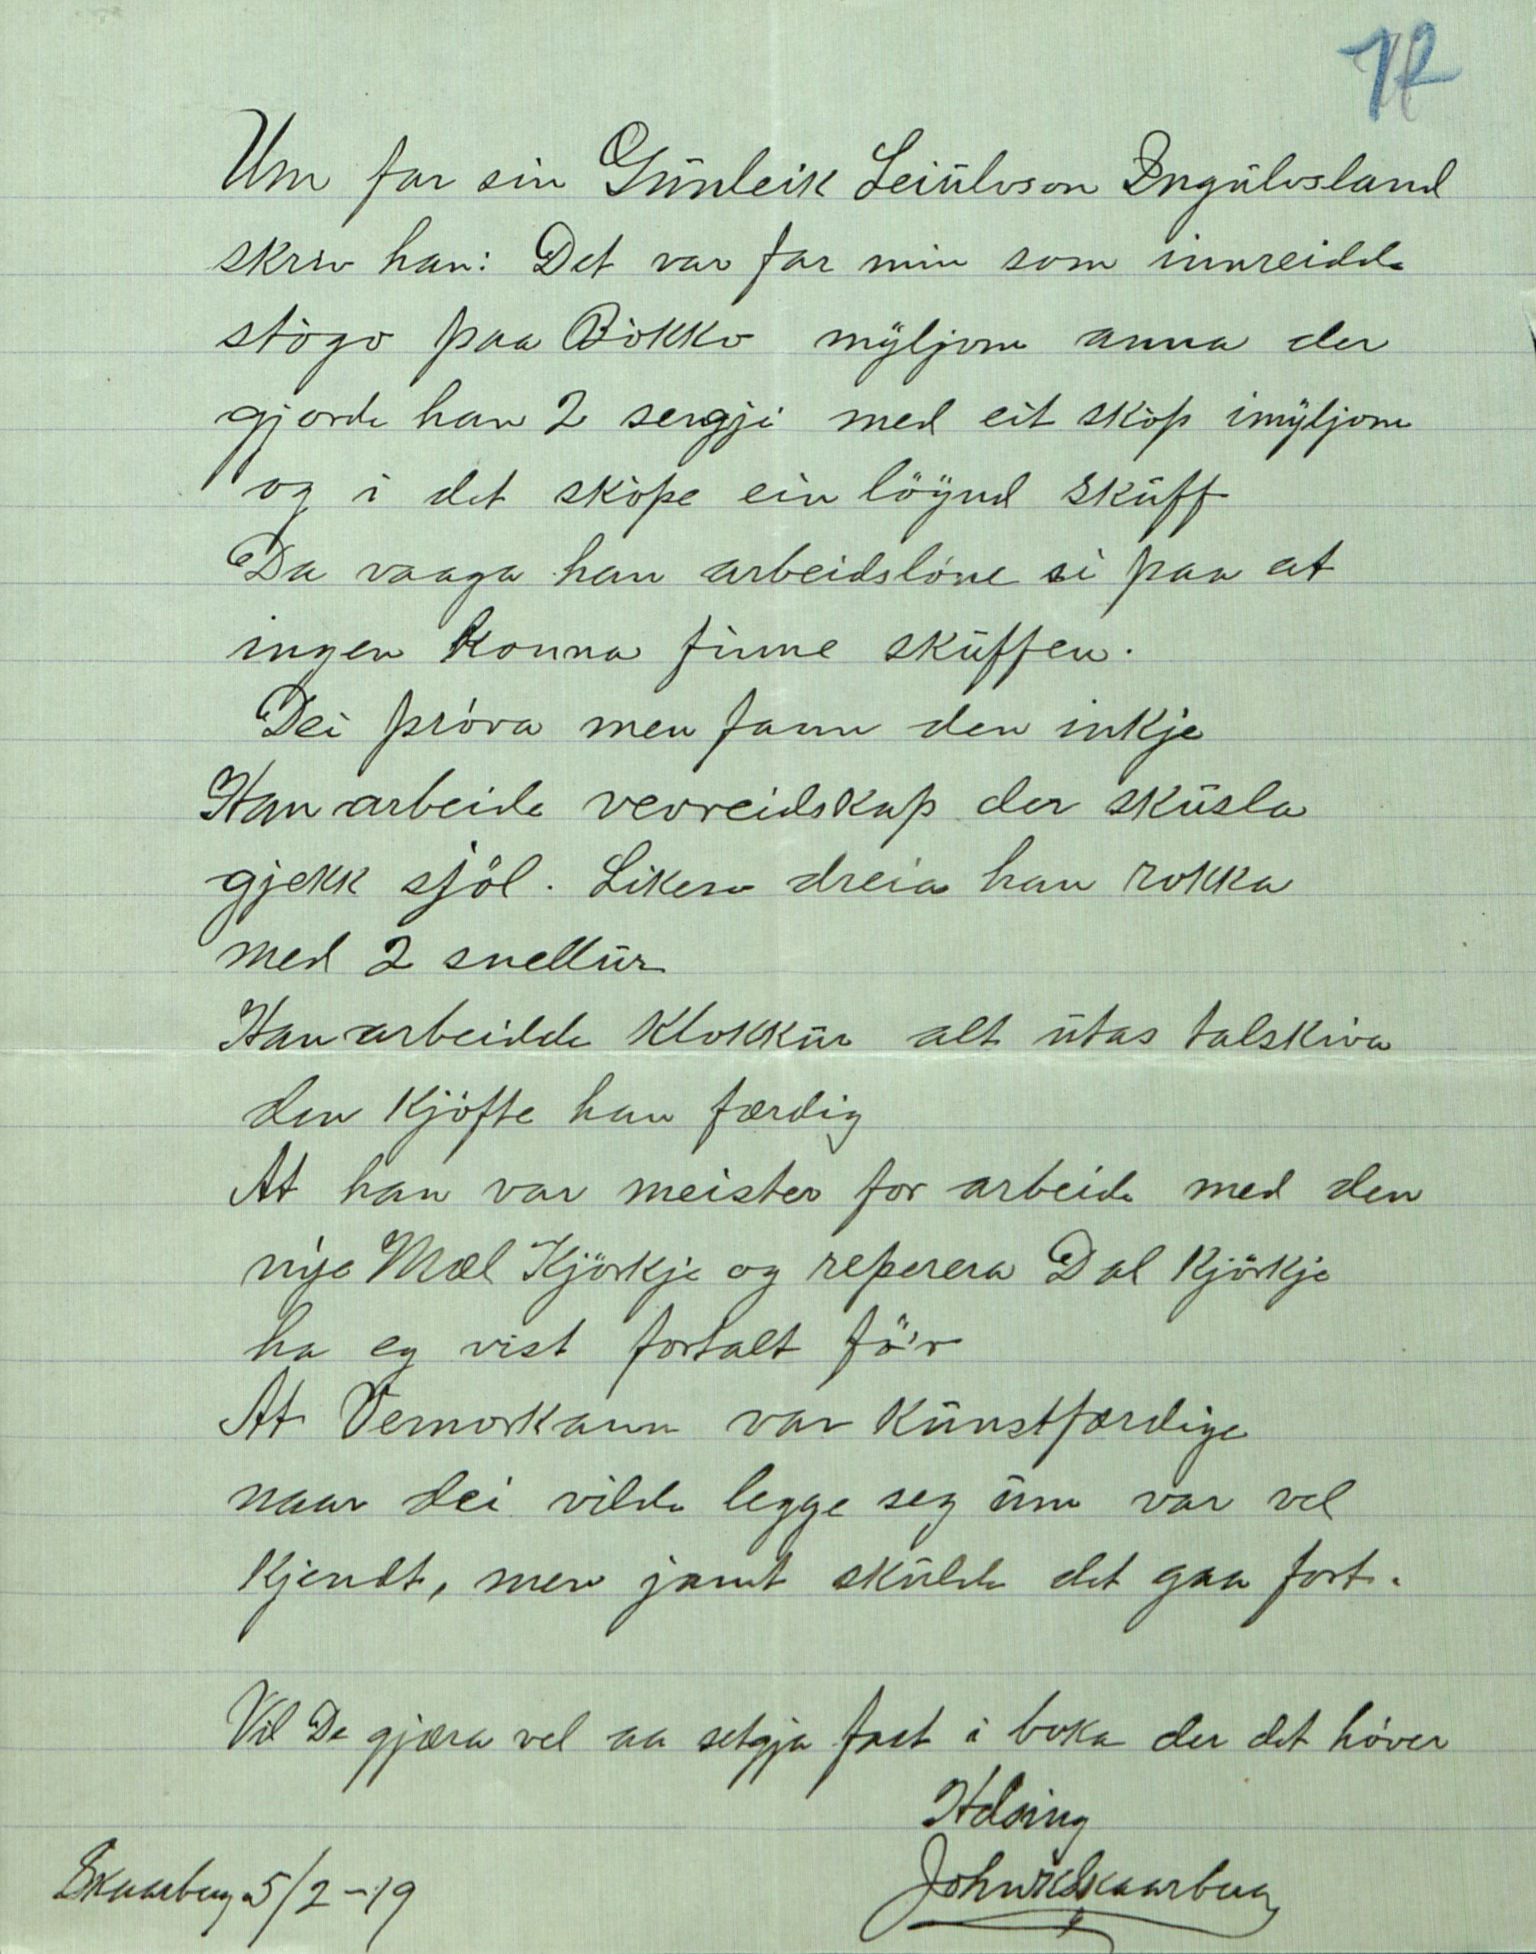 12
Um far sin Gunleik Leiulvson Ingulvsland
skriv han: Det var far min som innreidde
stògo paa Bòkko mÿljom anna der
gjorde han 2 sengji med eit skòp imÿljom
og i det skòpe ein löÿnd skuff
Da vaaga han arbeidslóne si paa at
ingen konna finne skuffen.
Dei próva men fann den inkje
Han arbeide vevreidskap der skusla
gjekk sjöl. Likeso dreia han rokka
med 2 snellur
Han arbeidde klokkur alt utas talskiva
den kjöfte han færdig
At han var meister for arbeide med den
nye Mæl Kjörkje og reperera Dal Kjörkje
ha eg vist fortalt fö'r
At Vemorkann var kunstfærdige
naar dei vilde legge seg um var vel
kjendt, men jamt skulde det gaa fort.
Vil De gjæra vel aa setgja fast i boka der det höver
Helsing
John Skaarberg
Skaarberg 5/2-19